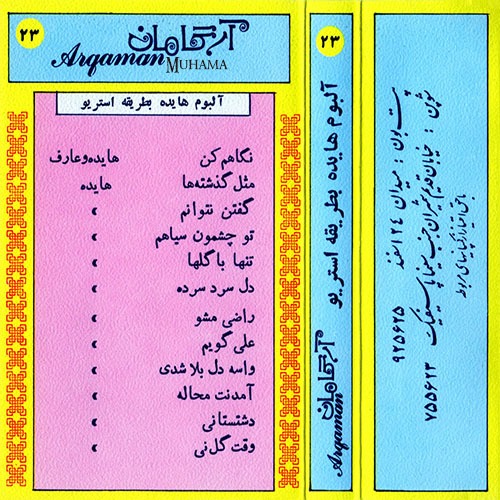 ۲۳
آرگامان
Arqaman
MUHAMA
آلبوم هایده بطریقه استریو
نگاهم کن هایده وعارف
مثل گذشته‌ها هایده
گفتن نتوانم »
تو چشمون سیاهم »
تنها با گلها »
دل سرد سرده »
راضی مشو »
علی گویم »
واسه دل بلا شدی »
آمدنت محاله »
دشتستانی »
وقت گل نی »
۲۳
آلبوم هایده بطریقه استریو
آرگامان
Arqaman
پست بون : میدان ۲۴ اسفند ۹۲۵۶۲۵
شوپن : خیابان قدیم شمیران جنب سینما پاسیفیک ۷۵۵۶۲۳